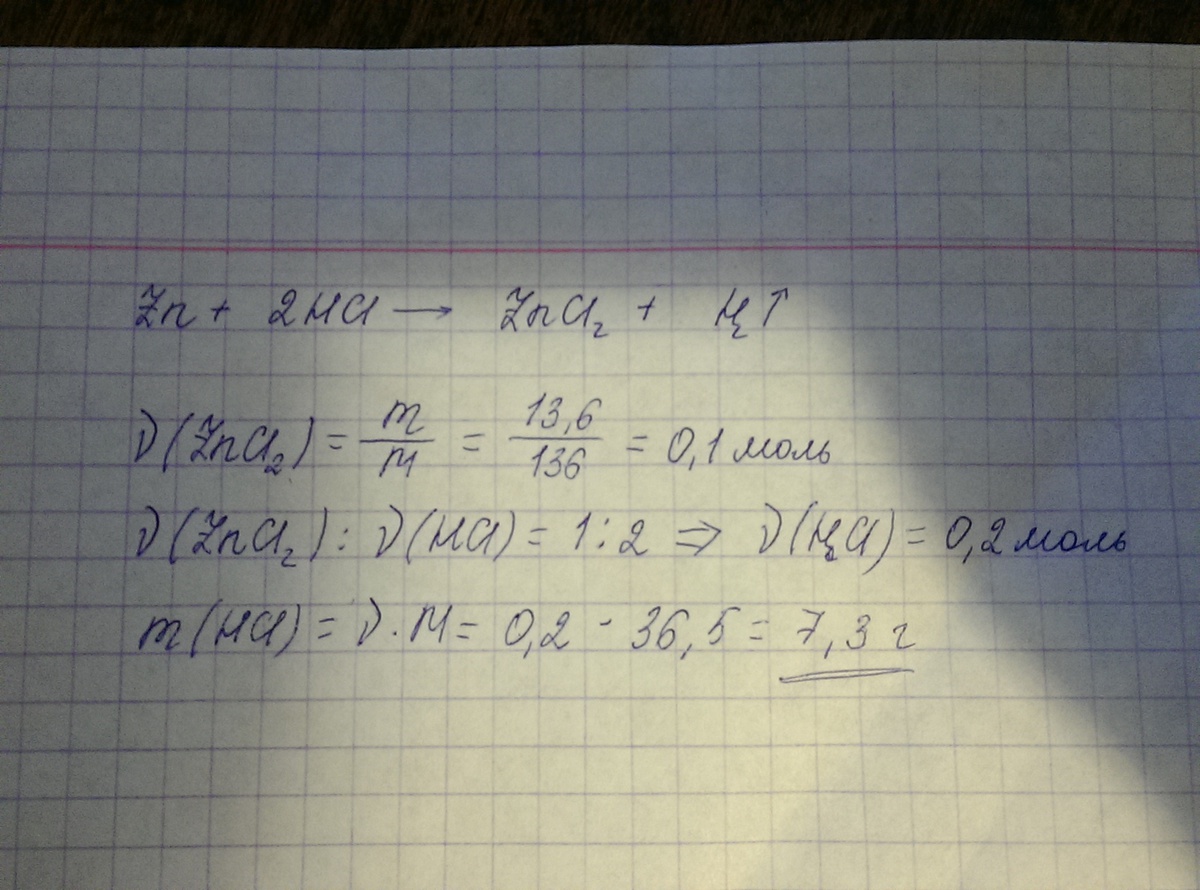 Zn + 2HCl → ZnCl₂ + H₂↑
ν(ZnCl₂) = m/M = 13,6/136 = 0,1 моль
ν(ZnCl₂) : ν(HCl) = 1 : 2 ⇒ ν(HCl) = 0,2 моль
m(HCl) = ν · M = 0,2 · 36,5 = 7,3 г